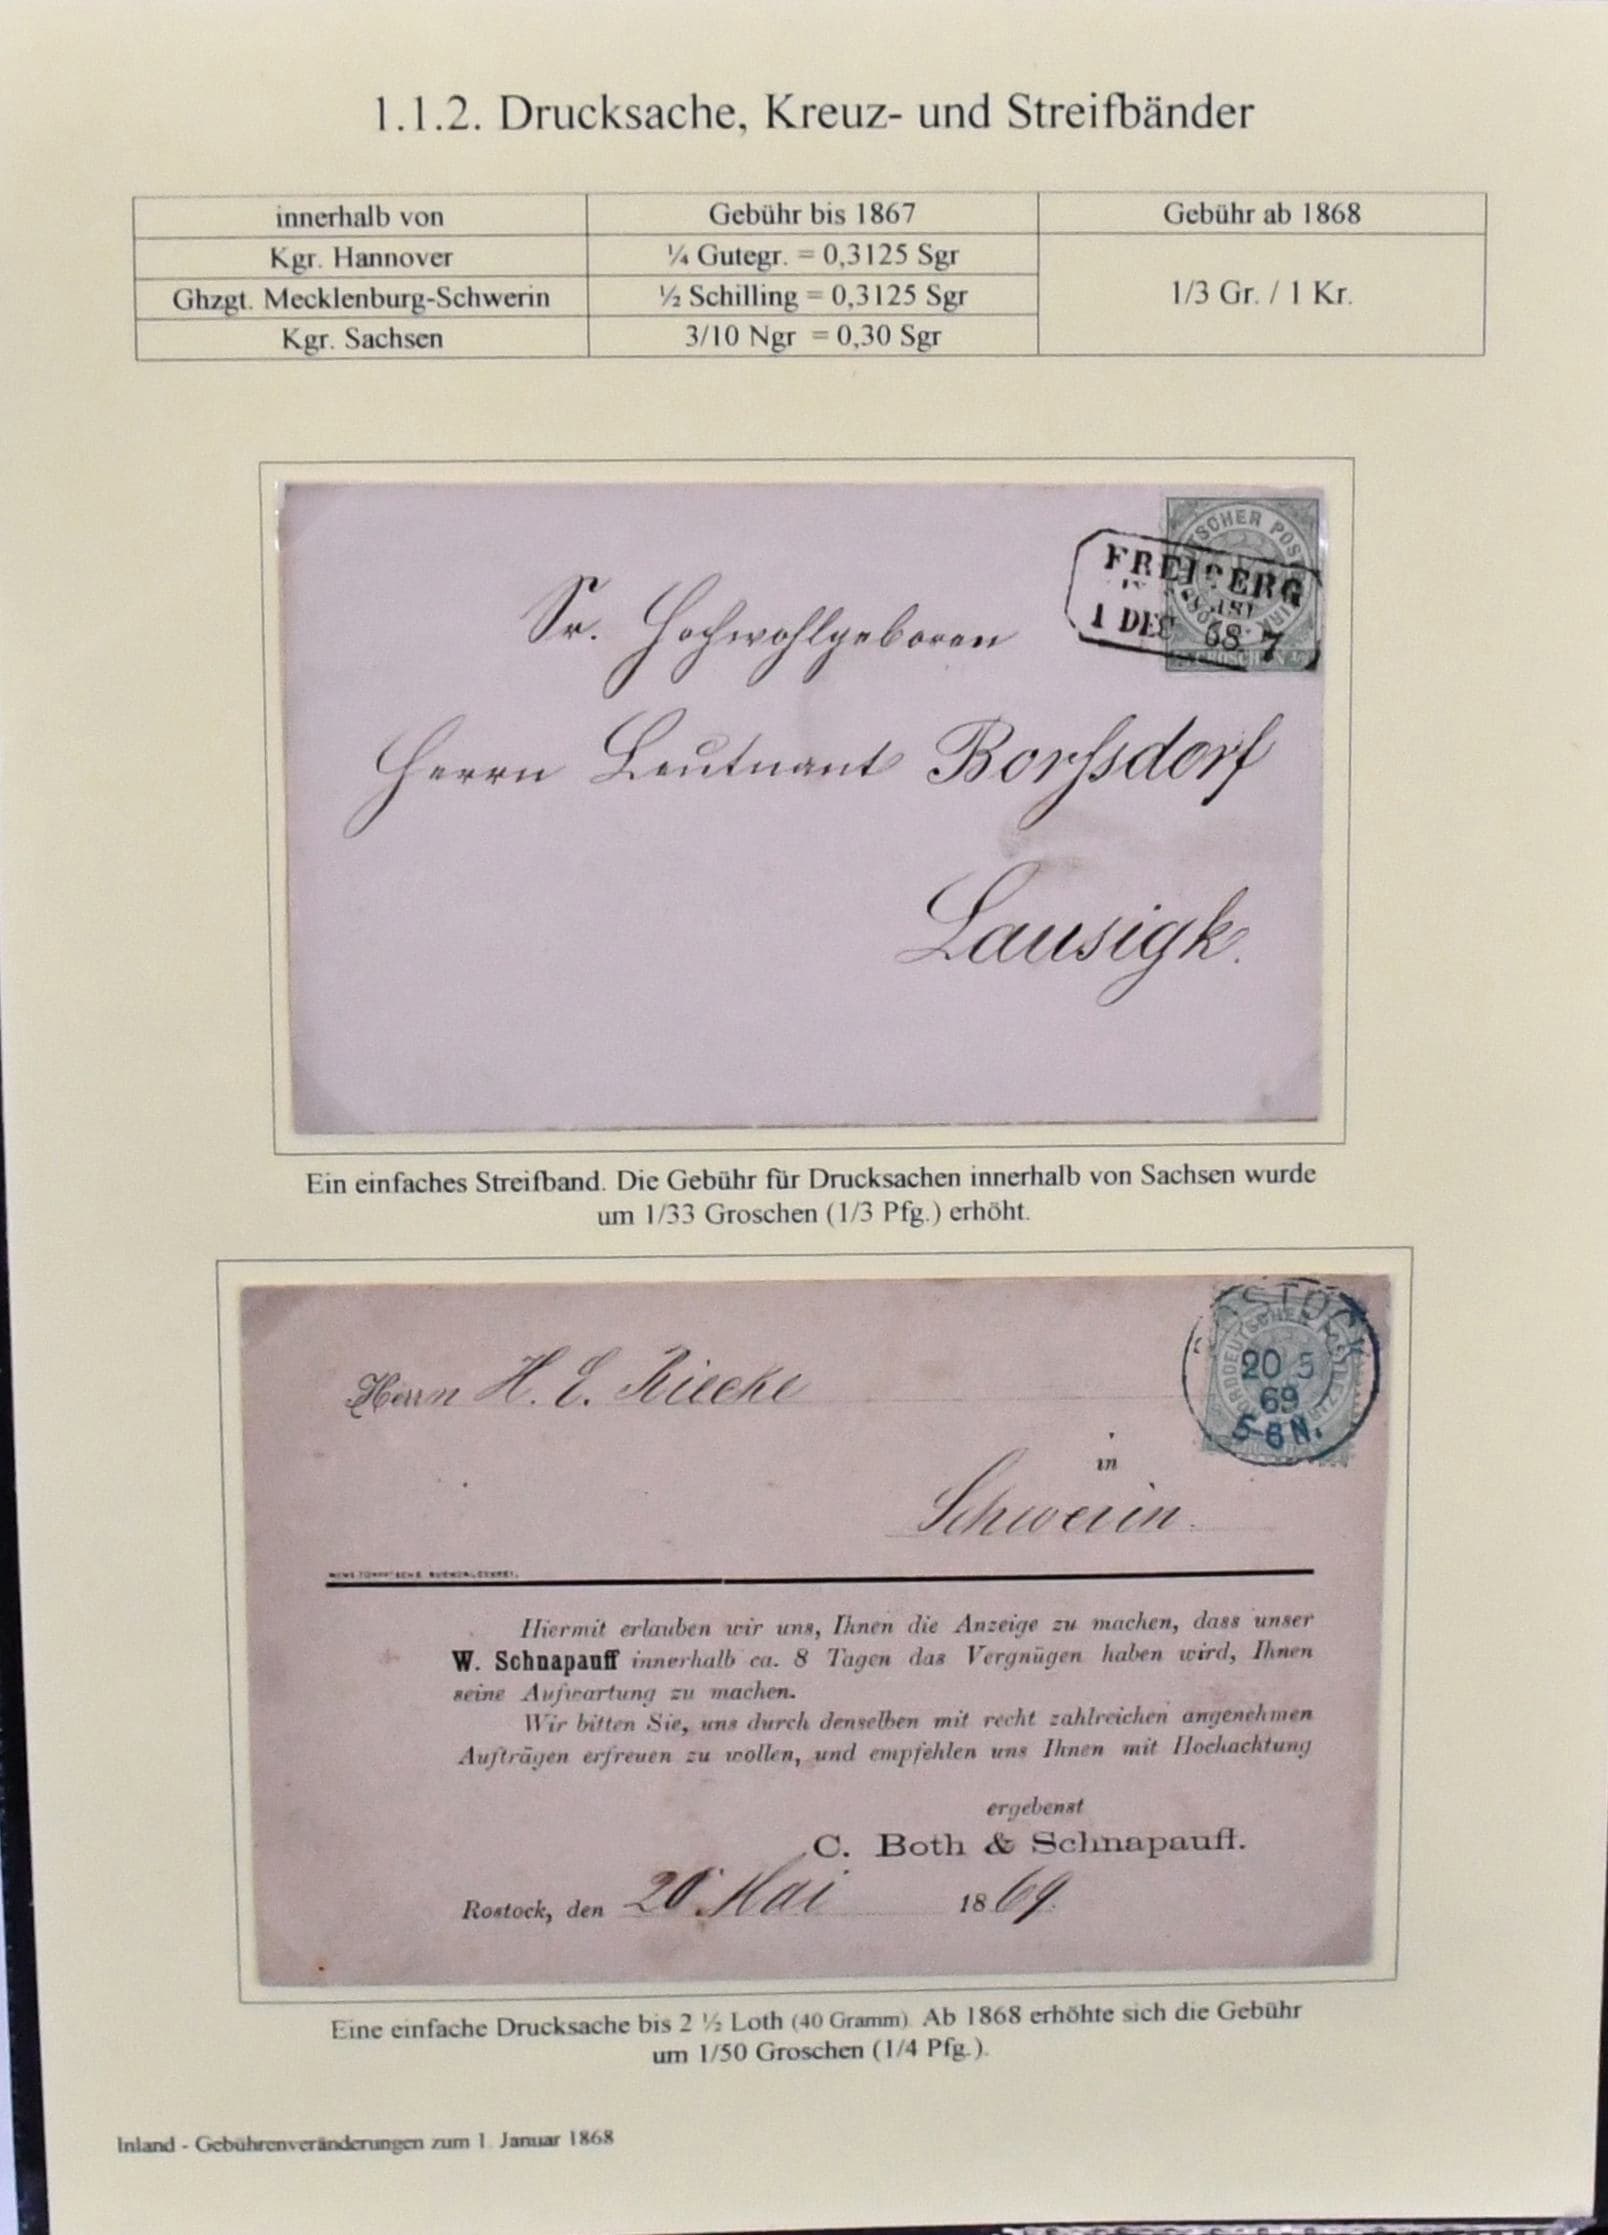 1.1.2. Drucksache, Kreuz- und Streifbänder
innerhalb von Gebühr bis 1867 Gebühr ab 1868
Kgr. Hannover ¼ Gutegr. = 0,3125 Sgr
Ghzgt. Mecklenburg-Schwerin ½ Schilling = 0,3125 Sgr 1/3 Gr. / 1 Kr.
Kgr. Sachsen 3/10 Ngr = 0,30 Sgr
FREIBERG
1 DEC 68 7
GROSCHEN
Sr. Hochwohlgeboren
Herrn Leutnant Borssdorf
Lausigk.
Ein einfaches Streifband. Die Gebühr für Drucksachen innerhalb von Sachsen wurde
um 1/33 Groschen (1/3 Pfg.) erhöht.
20 5
69
5-6 N.
Herrn H. E. Riecke
in
Schwerin.
Hiermit erlauben wir uns, Ihnen die Anzeige zu machen, dass unser
W. Schnapauff innerhalb ca. 8 Tagen das Vergnügen haben wird, Ihnen
seine Aufwartung zu machen.
Wir bitten Sie, uns durch denselben mit recht zahlreichen angenehmen
Aufträgen erfreuen zu wollen, und empfehlen uns Ihnen mit Hochachtung
ergebenst
C. Both & Schnapauff.
Rostock, den 20 Mai 1869.
Eine einfache Drucksache bis 2 ½ Loth (40 Gramm). Ab 1868 erhöhte sich die Gebühr
um 1/50 Groschen (1/4 Pfg.).
Inland - Gebührenveränderungen zum 1. Januar 1868